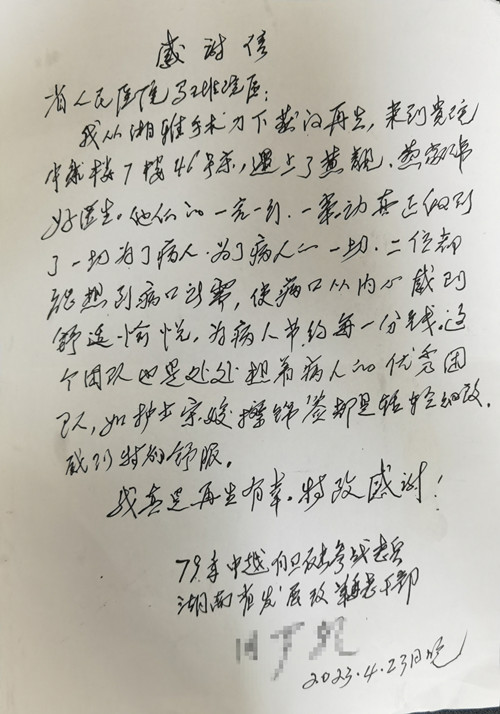 感谢信
省人民医院马王堆院区:
我从湘雅手术刀下获得再生,来到贵院
中7楼46号床,遇上了黄靓、
好医生。他们的一言一行.一举动真正做到
了一切为了病人.为了病人的一切.二位都
能想到病口所需,使病口从内心感到
舒适愉悦,为病人节约每一分钱。这
个团队也是处处想着病人的优秀团
队,如护士宗姣擦都是轻轻细致.
感到特别舒服。
我真是再生有幸。特致感谢!
79年中越自卫反击参战老兵
湖南省发展改革委干部
2023.4.23日晚